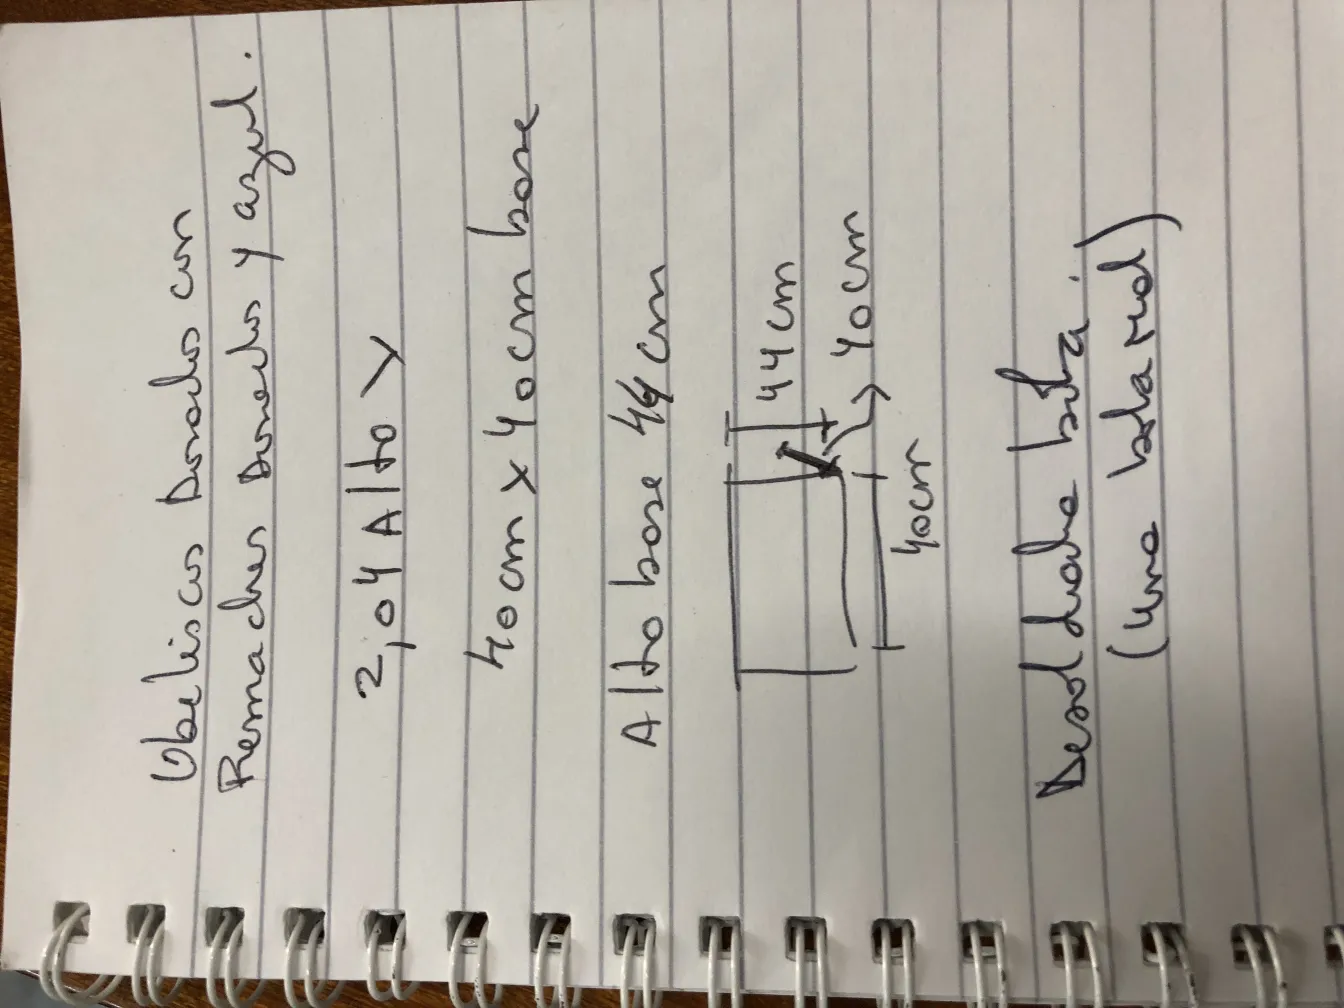 Obeliscos Dorados con
Remaches Dorados y azul.
2,04 Alto x
40cm x 40cm base
Alto base 44cm
44cm
40cm
40cm
Desoldada bita.
(una bola mal)